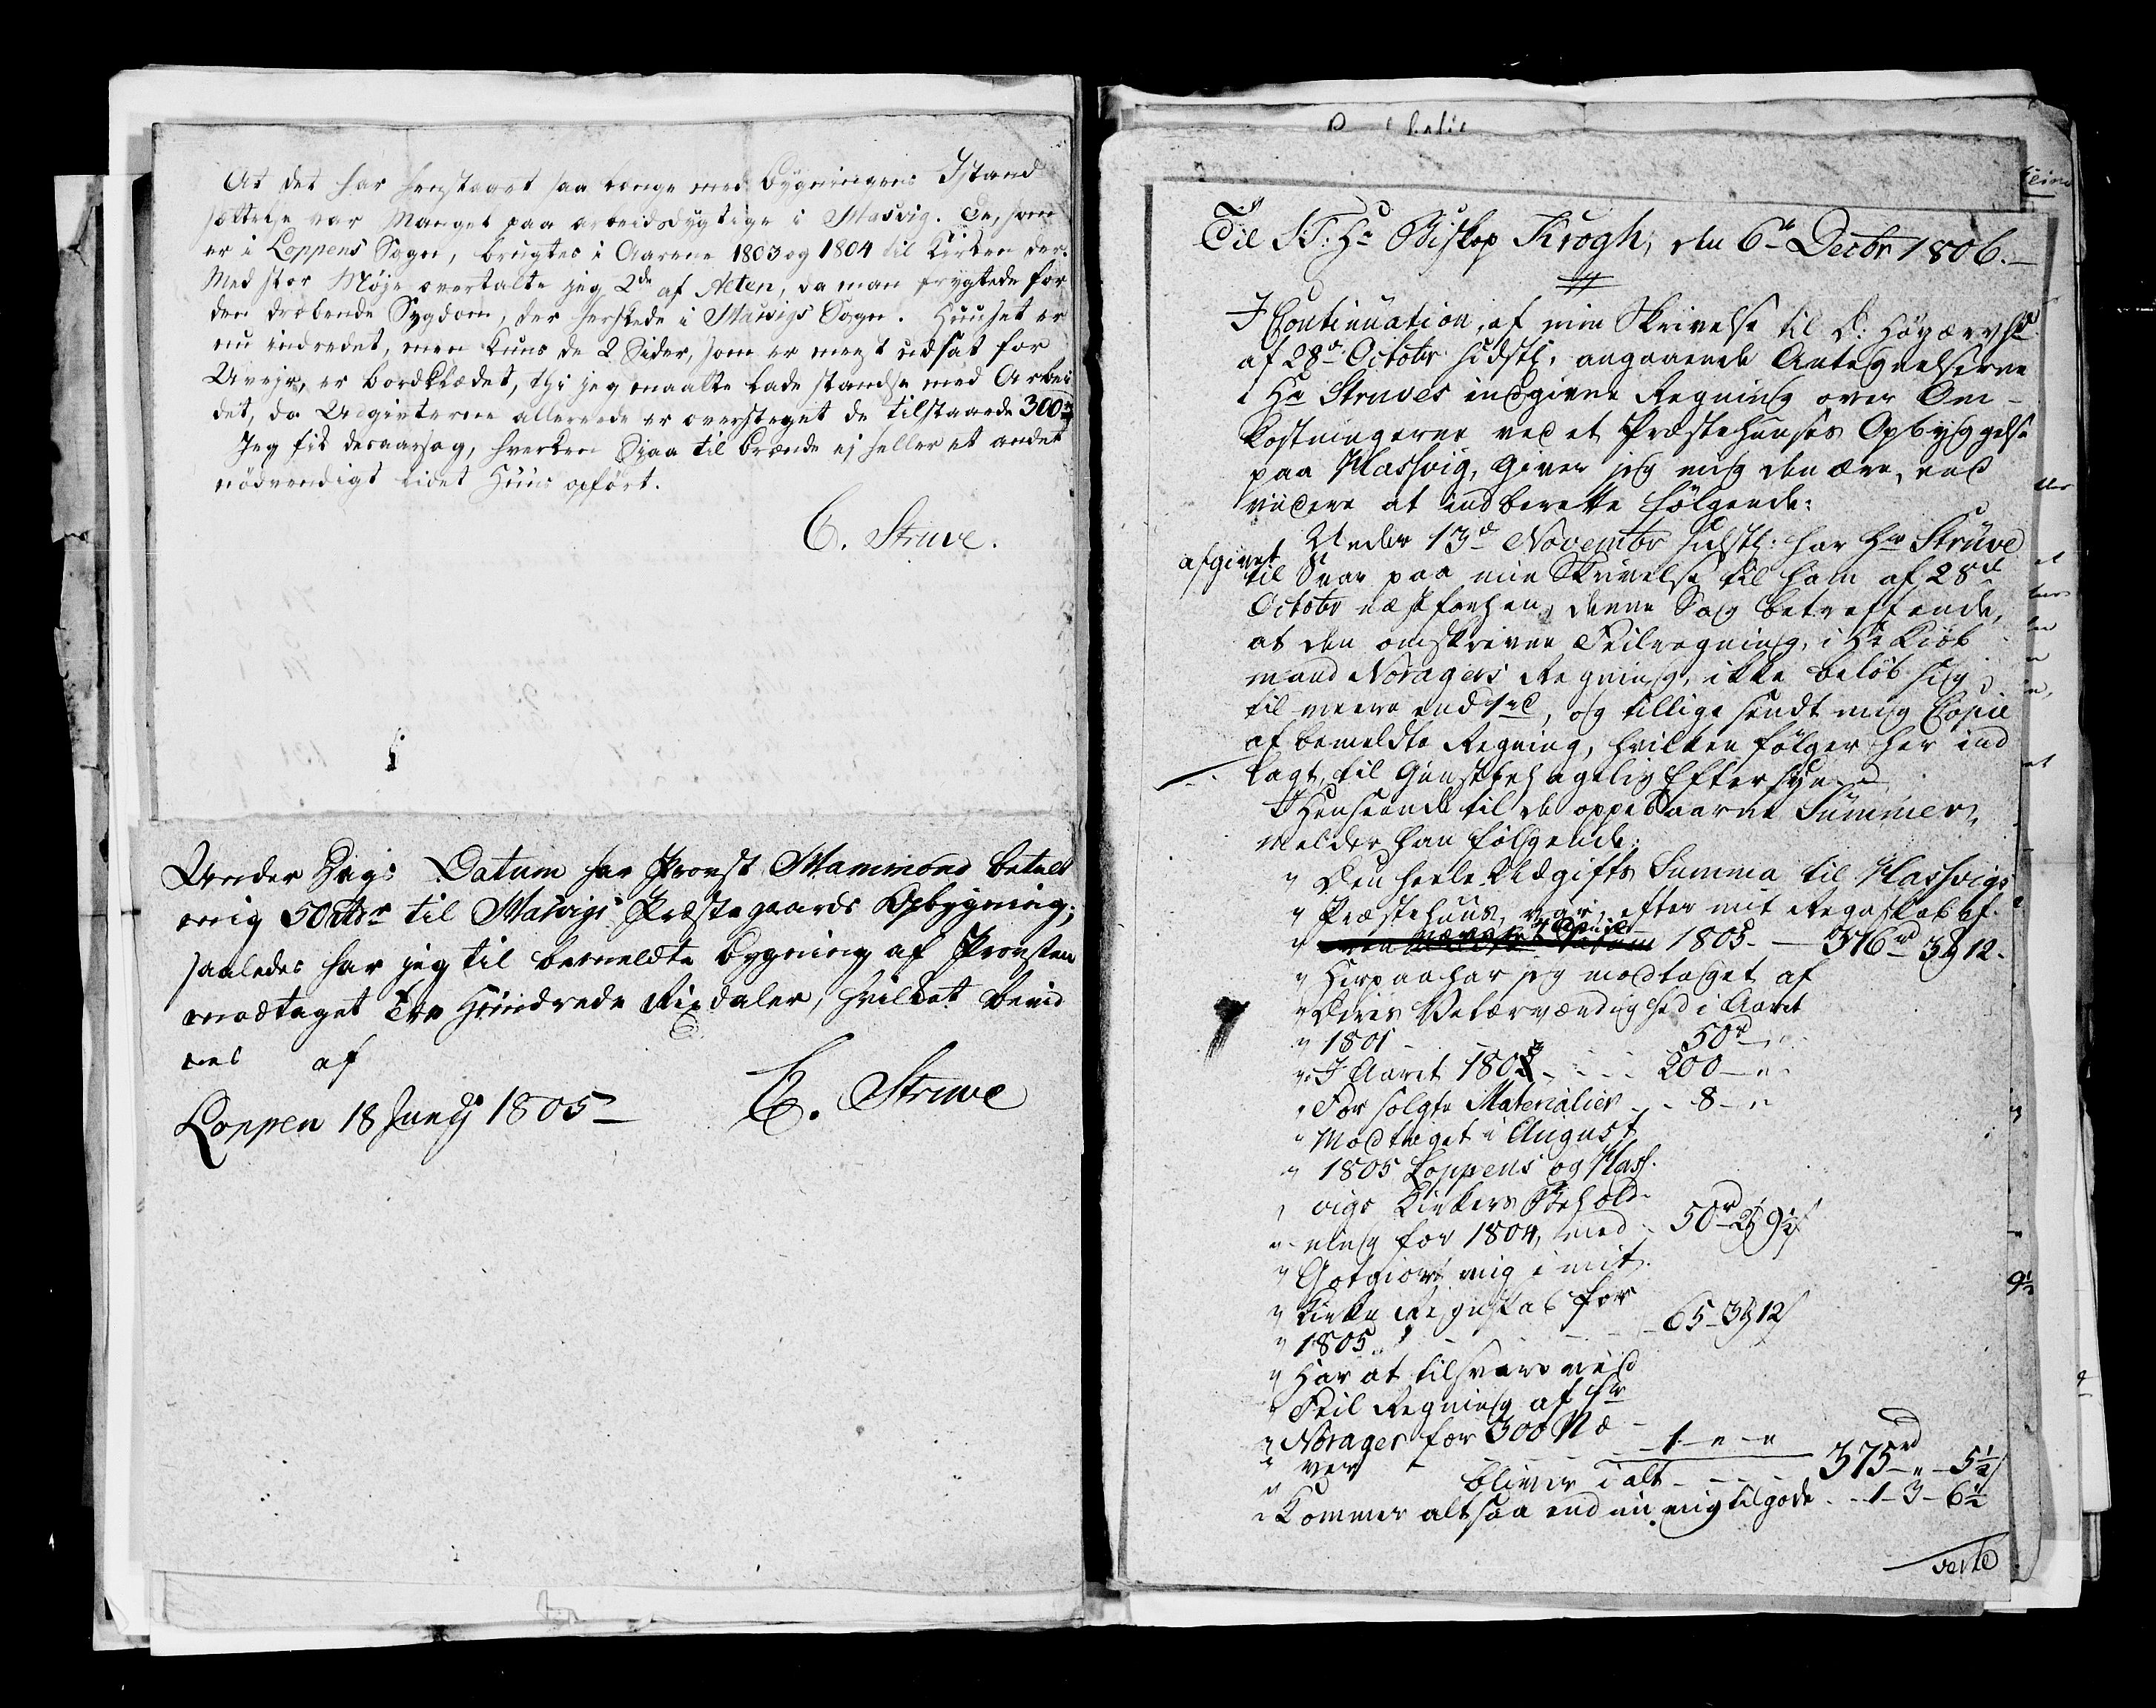 At det har henstaaet saa længe med Bygningens Istand
sættelse var Mangel paa arbeidsdygtige i Masvig. De, som
er i Loppens Sogn, brugtes i Aarene 1803 og 1804 til Kirken der.
Med stor Møje overtalte jeg 2de af Alten, da man frygtede for
den dræbende Sygdom, der herskede i Masvigs Sogn. Huuset er
nu indredet, men kuns de 2 Sider, som er meest udsat for
Uvejr, er bordklædet, thi jeg maatte lade standse med Arbei
det, da Udgivterne allerede er oversteget de tilstaaede 300 rd
Jeg fik desaarsag, hverken Sjaa til Brænde ej heller et andet
nödvendigt lidet Huus opfört.
C. Struve.
Under Dags Datum har Provst Mammond betalt
mig 50 rdr til Masvigs Præstegaards Opbygning;
saaledes har jeg til bemeldte Bygning af Provsten
modtaget Tre Hundrede Rixdaler, hvilket bevid
nes af
Loppen 18 Juny 1805
C. Struve
Til S.T. Hr Biskop Krogh, den 6te Decbr 1806.
I Continuation af min Skrivelse til D: Höyærvhd
af 28de Octobr sidstl. angaaende Antegnelserne
i Hr Struves indgivne Regning over Om-
kostningerne ved et Præstehuuses Opbyggelse
paa Massvig, giver jeg mig den ære, end
videre at indberette fölgende:
Under 13de Novembr sidstl: har Hr Struve
afgivet
til Svar paa min Skrivelse til ham af 28de
Octobr næstforhen, denne Sag betreffende,
at den omskrevne Feilregning, i Hr Kiöb
mand Noragers Regning, ikke belöb sig
til meere end 1 rd, og tillige sendt mig Copie
af bemeldte Regning, hvilken fölger her ind
lagt, til Gunstbehagelig Eftersyn
I Henseende til de oppebaarne Summer,
melder han fölgende:
" Den heele Udgifts Summa til Massvigs
" Præstehuus, var, efter mit Regnskab af
" 1805 - 316 rd 3 12.
" Herpaa har jeg modtaget af
" Deres Velærværdighed i Aaret
" 1801 - 50 rd "
" I Aaret 180 - - - 200 - "
" For solgte Materialier - - 8 - "
" Modtaget i August
" 1805 Loppens og Mass-
" vigs Kirkers Behold-
" ning for 1804, med - 50 r 2 9½
" Godtgiort mig i mit
" Kirke Regnskab for
" 1805 - - - 65 - 3 12
" Har at tilsvare ved
" Feil Regning af Hr
" Norager for 300 Næ
" ver - 1 - " - "
" bliver i alt - - - 375 rd - " - 5½
" Kommer altsaa end nu mig tilgode - - 1 - 3 - 6½
verte